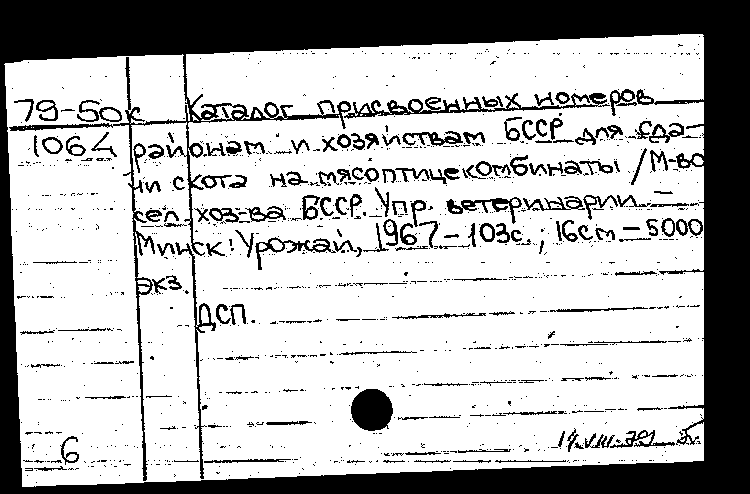 79-50к Каталог присвоенных номеров
1064 районам и хозяйствам БССР для сда-
чи скота на мясоптицекомбинаты / М-во
сел. хоз-ва БССР. Упр. ветеринарии. —
Минск: Урожай, 1967 - 103с.; 16см - 5000
экз.
ДСП.
6